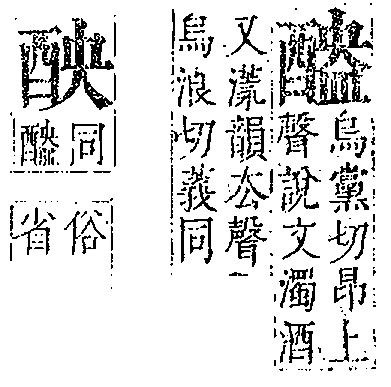 醠
烏黨切昂上
聲說文濁酒
又漾韻厺聲
烏浪切義同
同醠
俗省